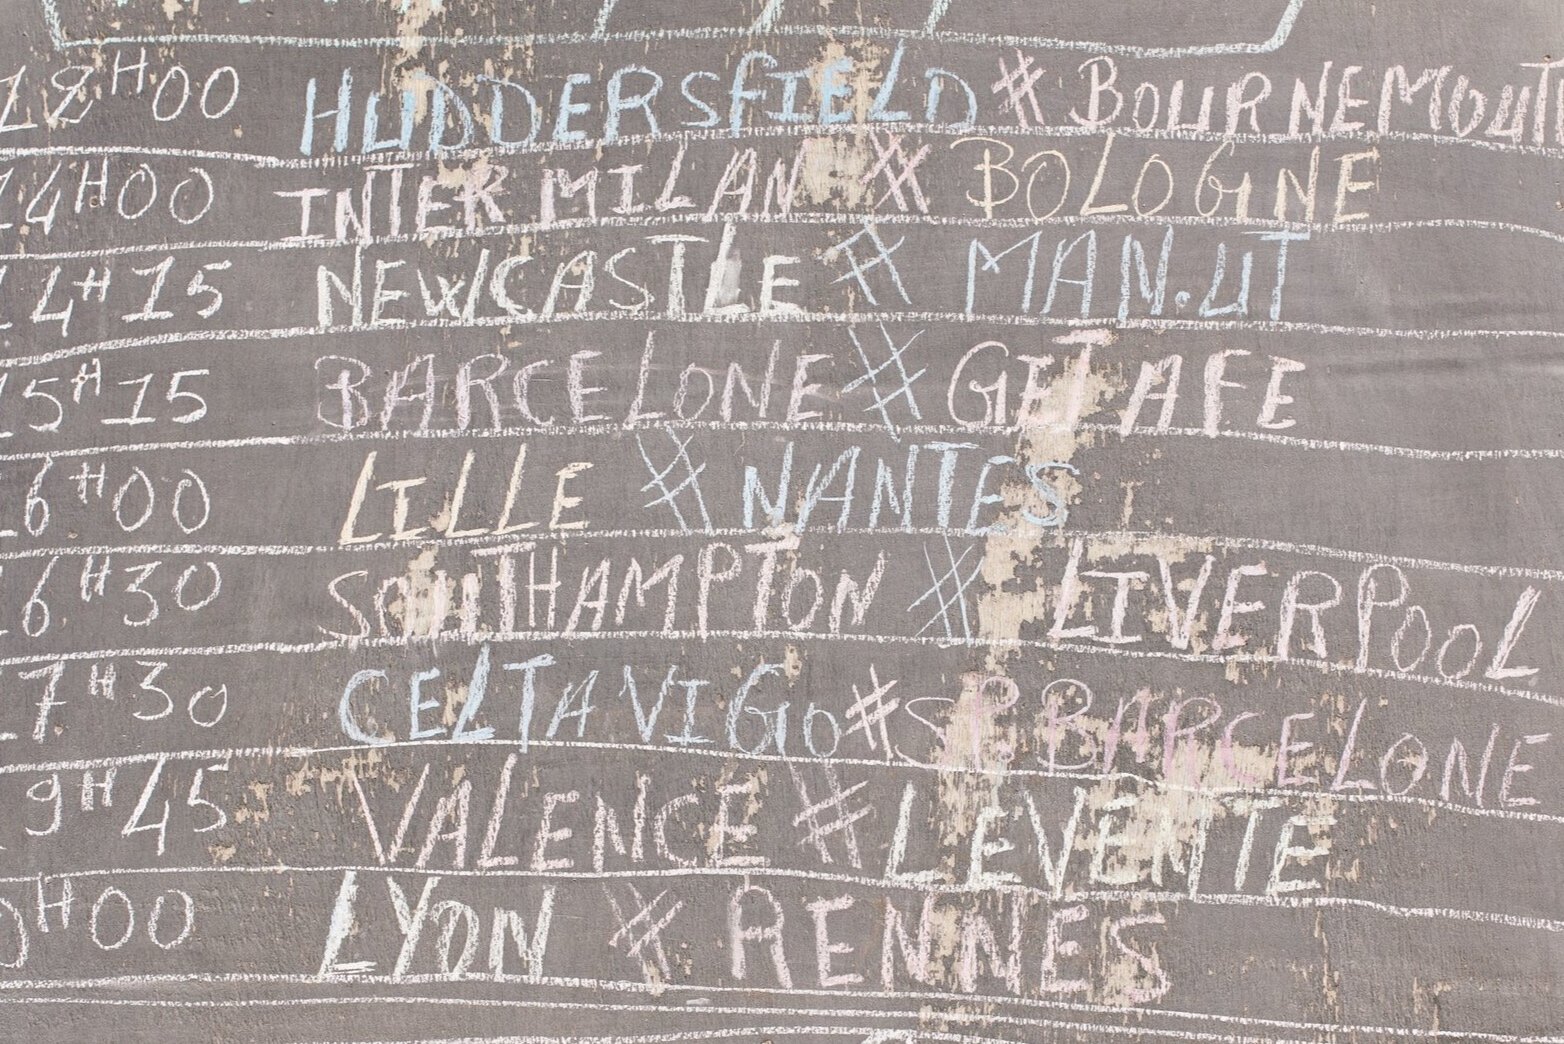 12H00 HUDDERSFIELD # BOURNEMOUT
14H00 INTER MILAN # BOLOGNE
14H15 NEWCASTLE # MAN.UT
15H15 BARCELONE # GETAFE
16H00 LILLE # NANTES
16H30 SOUTHAMPTON # LIVERPOOL
7H30 CELTAVIGO # SP.BARCELONE
9H45 VALENCE # LEVENTE
0H00 LYON # RENNES